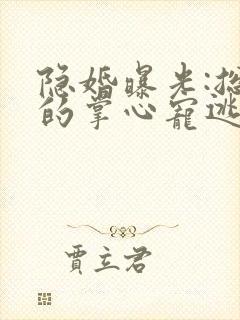 隐婚曝光:总
的掌心宠逃
贾立君